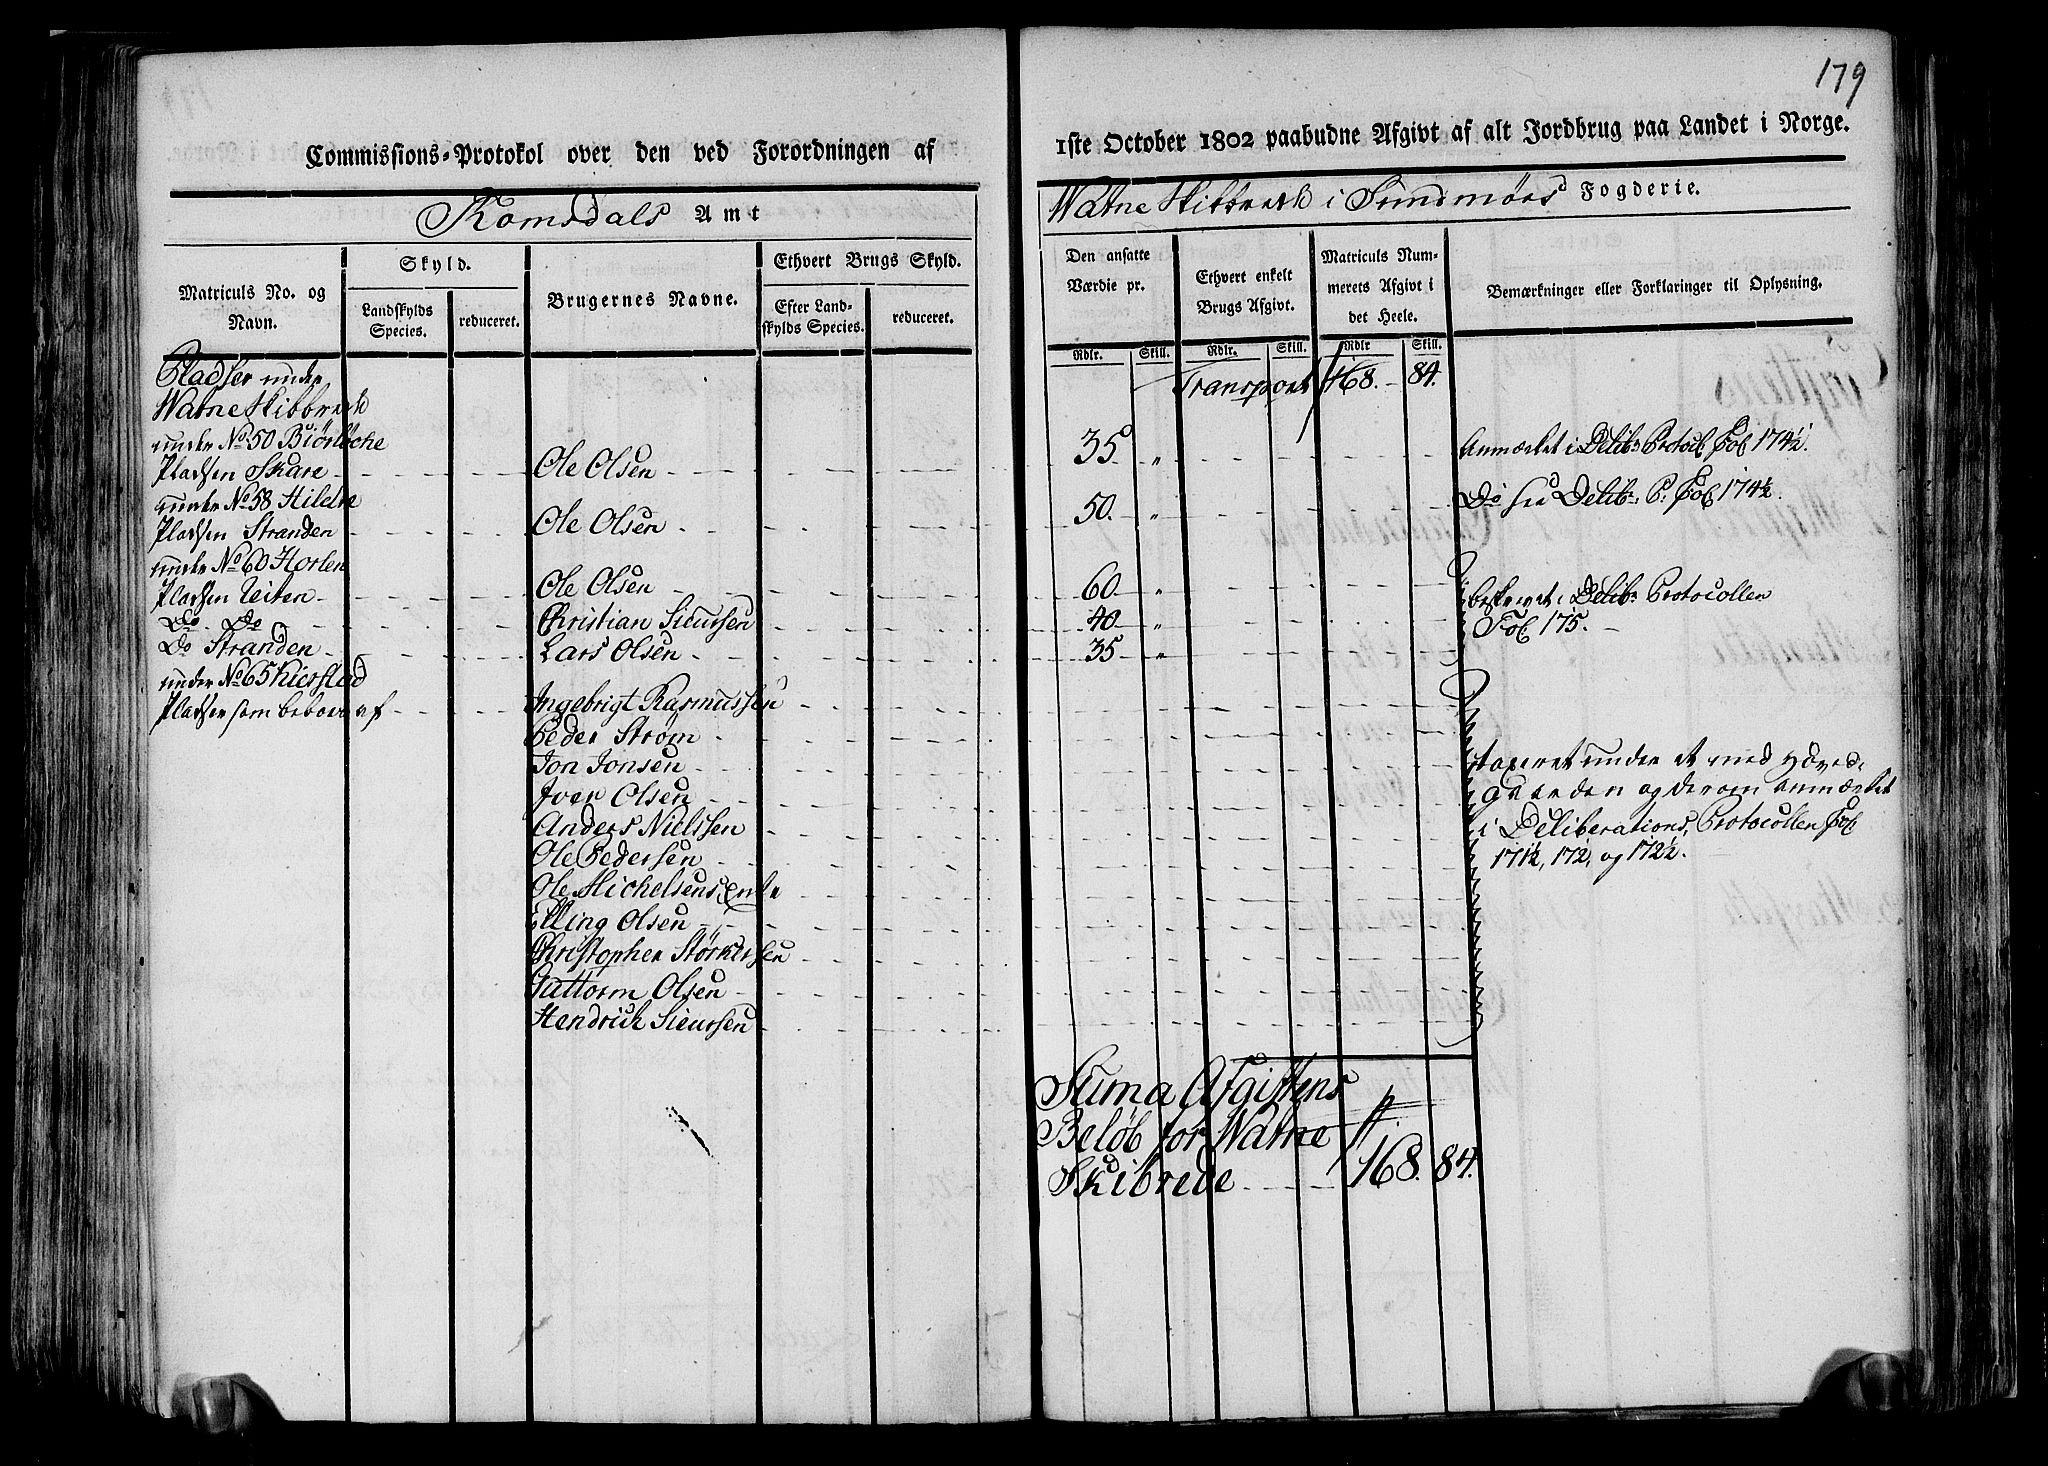 179
Commissions-Protokol over den ved Forordningen af 1ste October 1802 paabudne Afgivt af alt Jordbrug paa Landet i Norge.
Romsdals Amt
Watne Skibbrede i Sundmørs Fogderie.
Matriculs No. og Navn.
Skyld.
Landskylds Species.
reduceret.
Brugernes Navne.
Ethvert Brugs Skyld.
Efter Landskylds Species.
reduceret.
Den ansatte Værdie pr.
Rdlr. Skill.
Ethvert enkelt Brugs Afgivt.
Rdlr. Skill.
Matriculs Nummerets Afgivt i det Heele.
Rdlr Skill.
Bemærkninger eller Forklaringer til Oplysning.
Pladser under Transport 168. 84.
Watne Skibbrede
under No 50 Biørløche
Pladsen Skare Ole Olsen 35 " Anmærket i Delib: Protocl Fol 174½.
under No 58 Hildre
Pladsen Stranden Ole Olsen 50. " Do paa Delib: P: Fol 174½.
under No 60 Horlen
Pladsen Teiten Ole Olsen 60. " beskrevet i Delib: Protocollen
Do Do Christian Siursen 40 " Fol 175.
Do Stranden Lars Olsen 35 "
under No 65 Kierstad
Pladser som beboes af Ingebrigt Rasmussen
Peder Strøm
Jon Jonsen taxeret under et med Hoved-
Iver Olsen gaarden og derom anmærket
Anders Nielssen i Deliberations, Protocollen Fol
Ole Pedersen 171½, 172, og 172½.
Ole Michelsens Enke
Elling Olsen
Christopher Størkersen
Guttorm Olsen
Hendrick Siursen
Suma Afgiftens
Beløb for Watne
Skibrede 168. 84.